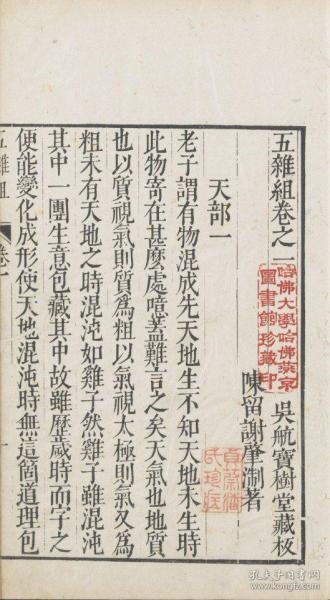 五雜組卷之一
哈佛大學哈佛燕京
圖書館珍藏印
吳航寶樹堂藏板
陳留謝肇淛著
天部一
老子謂有物混成先天地生不知天地未生時
此物寄在甚麼處噫蓋難言之矣天氣也地質
也以質視氣則質爲粗以氣視太極則氣又爲
粗未有天地之時混沌如雞子然雞子雖混沌
其中一團生意包藏其中故雖歷歲時而字之
便能變化成形使天地混沌時無這箇道理包
五雜組
卷一
一
孔夫子旧书网